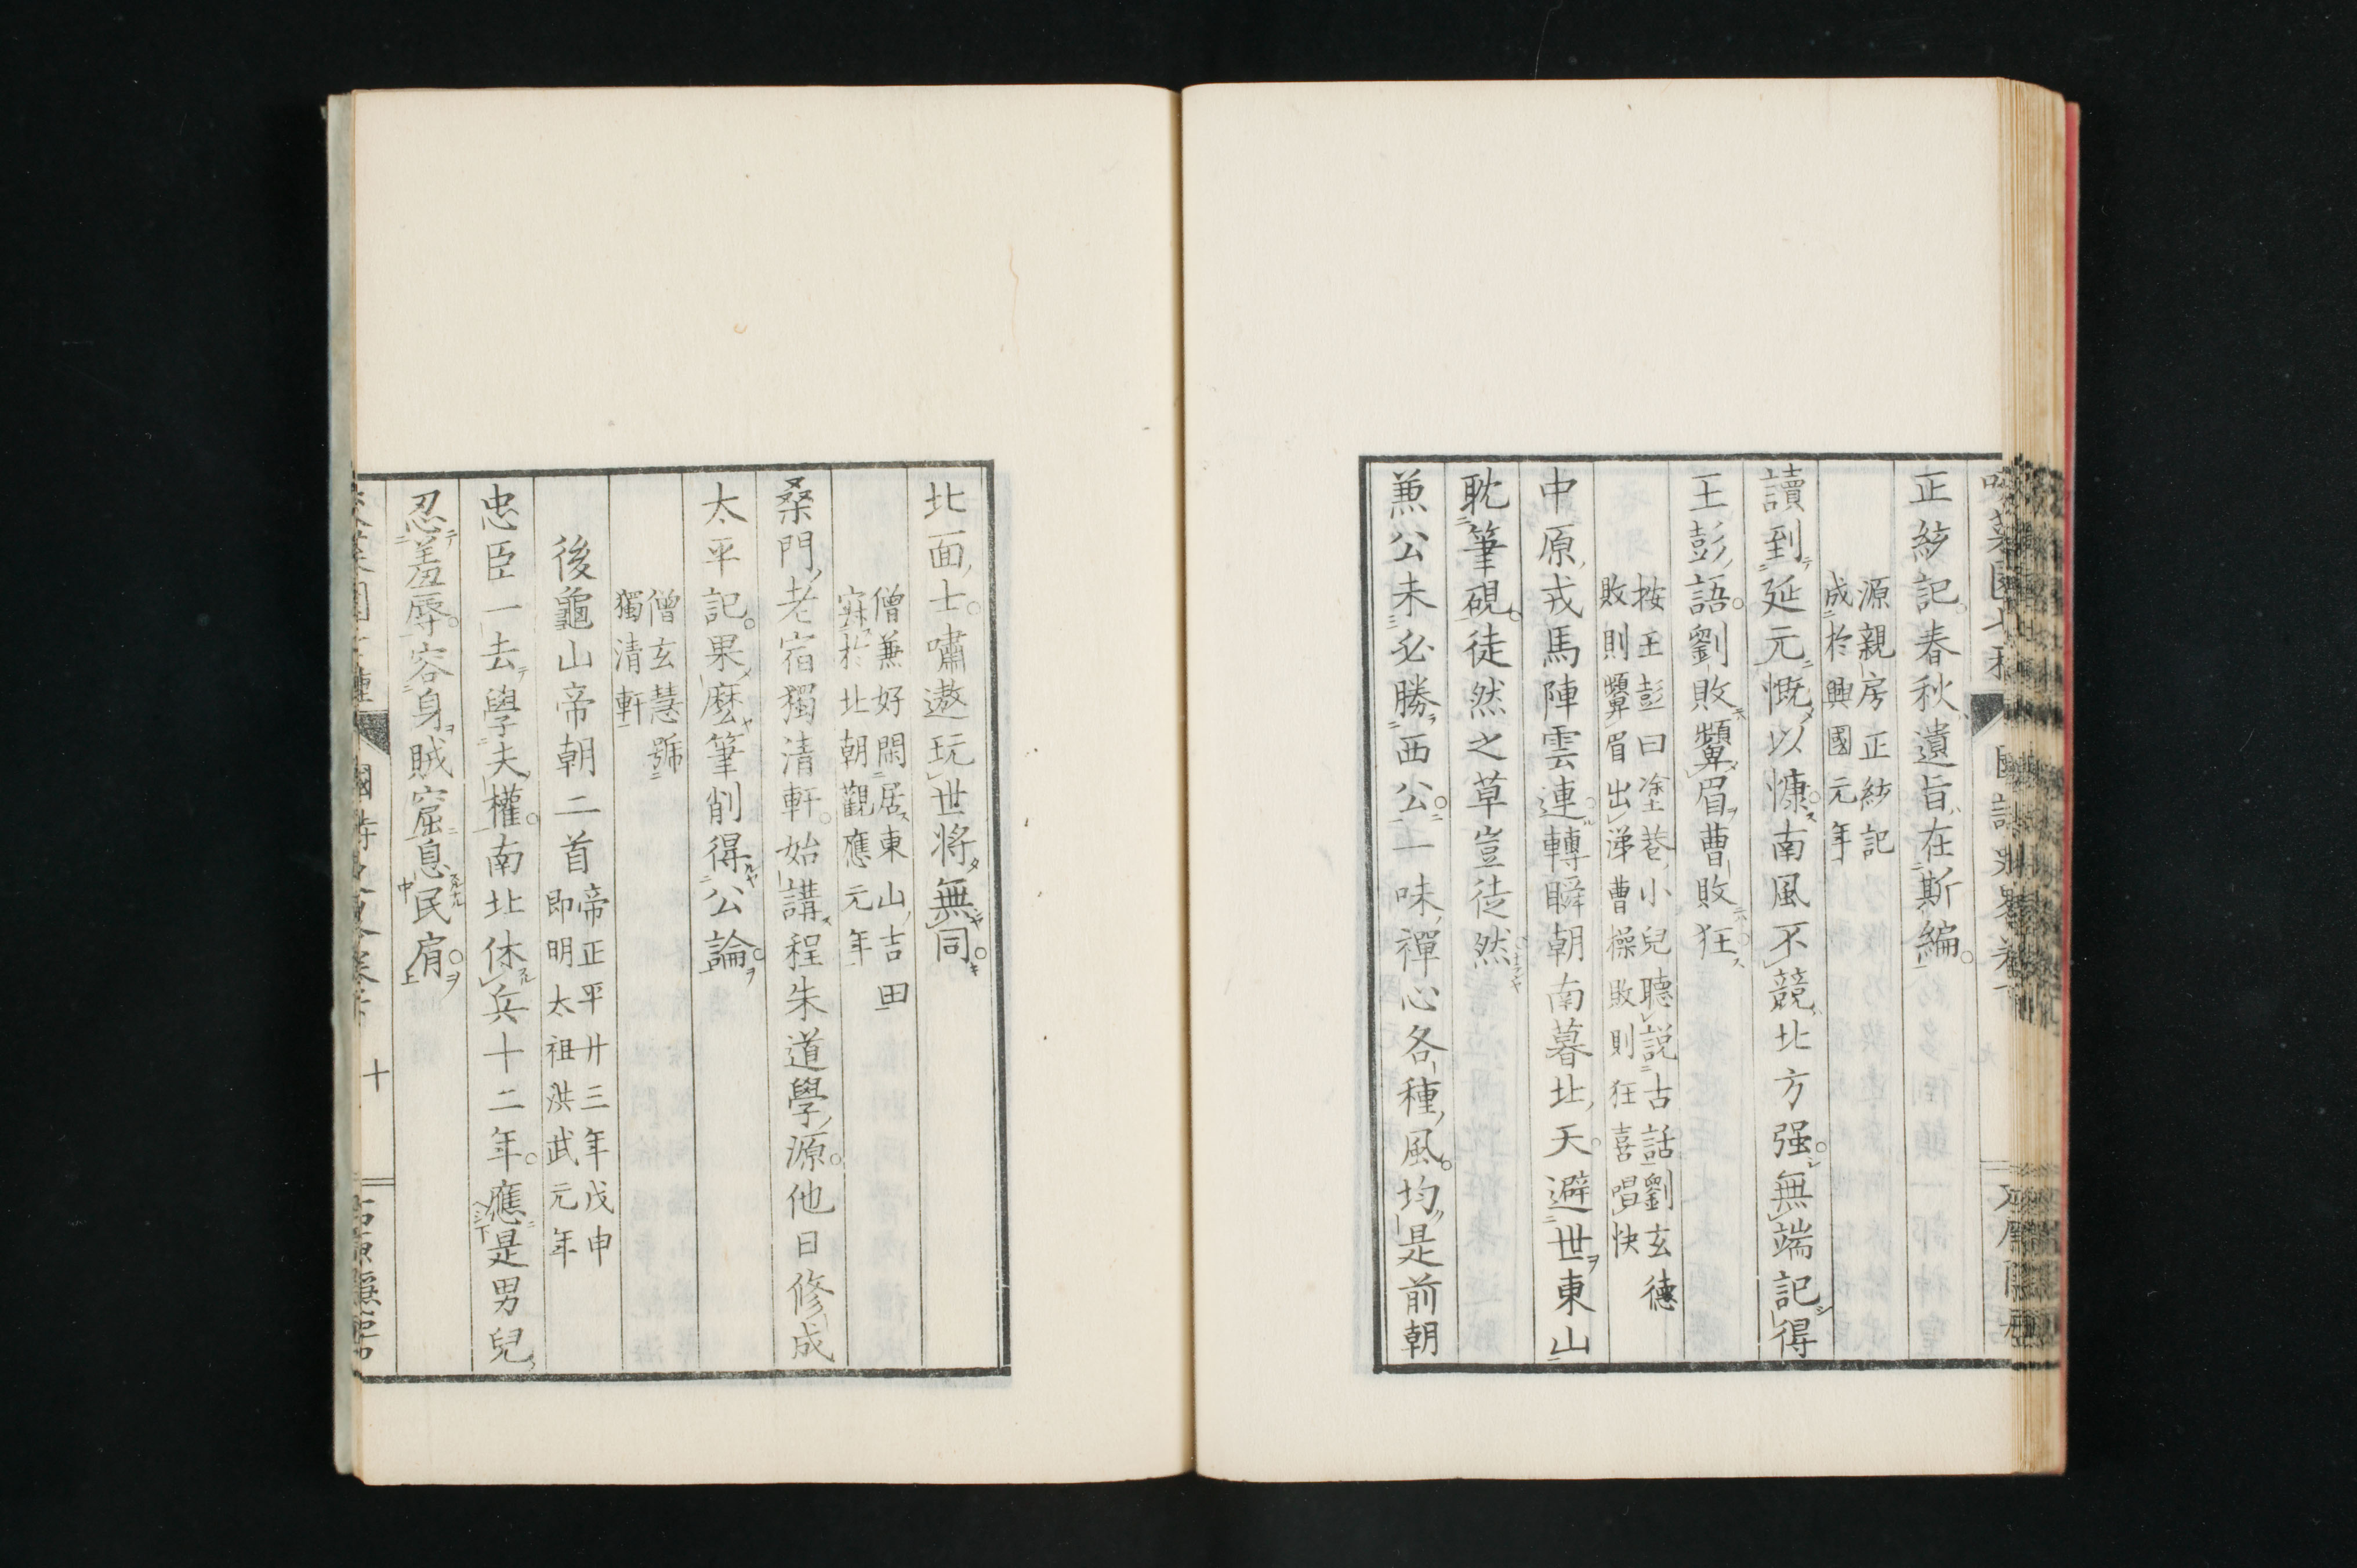 正統記春秋遺旨在斯編
源親房正統記
成於興國元年
讀到延元慨以慷南風不競北方强無端記得
王彭語劉敗顰眉曹敗狂
按王彭曰塗巷小兒聽説古話劉玄德
敗則顰眉出涕曹操敗則狂喜唱快
中原戎馬陣雲連轉瞬朝南暮北天避世東山
耽筆硯徒然之草豈徒然
兼公未必勝西公一味禪心各種風均是前朝
北面士嘯遨玩世將無同
僧兼好閑居東山吉田
寂於北朝觀應元年
桑門老宿獨清軒始講程朱道學源他日修成
太平記果麼筆削得公論
僧玄慧號
獨清軒
後龜山帝朝二首
帝正平廿三年戊申
即明太祖洪武元年
忠臣一去學夫權南北休兵十二年應是男兒
忍羞辱容身賊窟息民肩
十